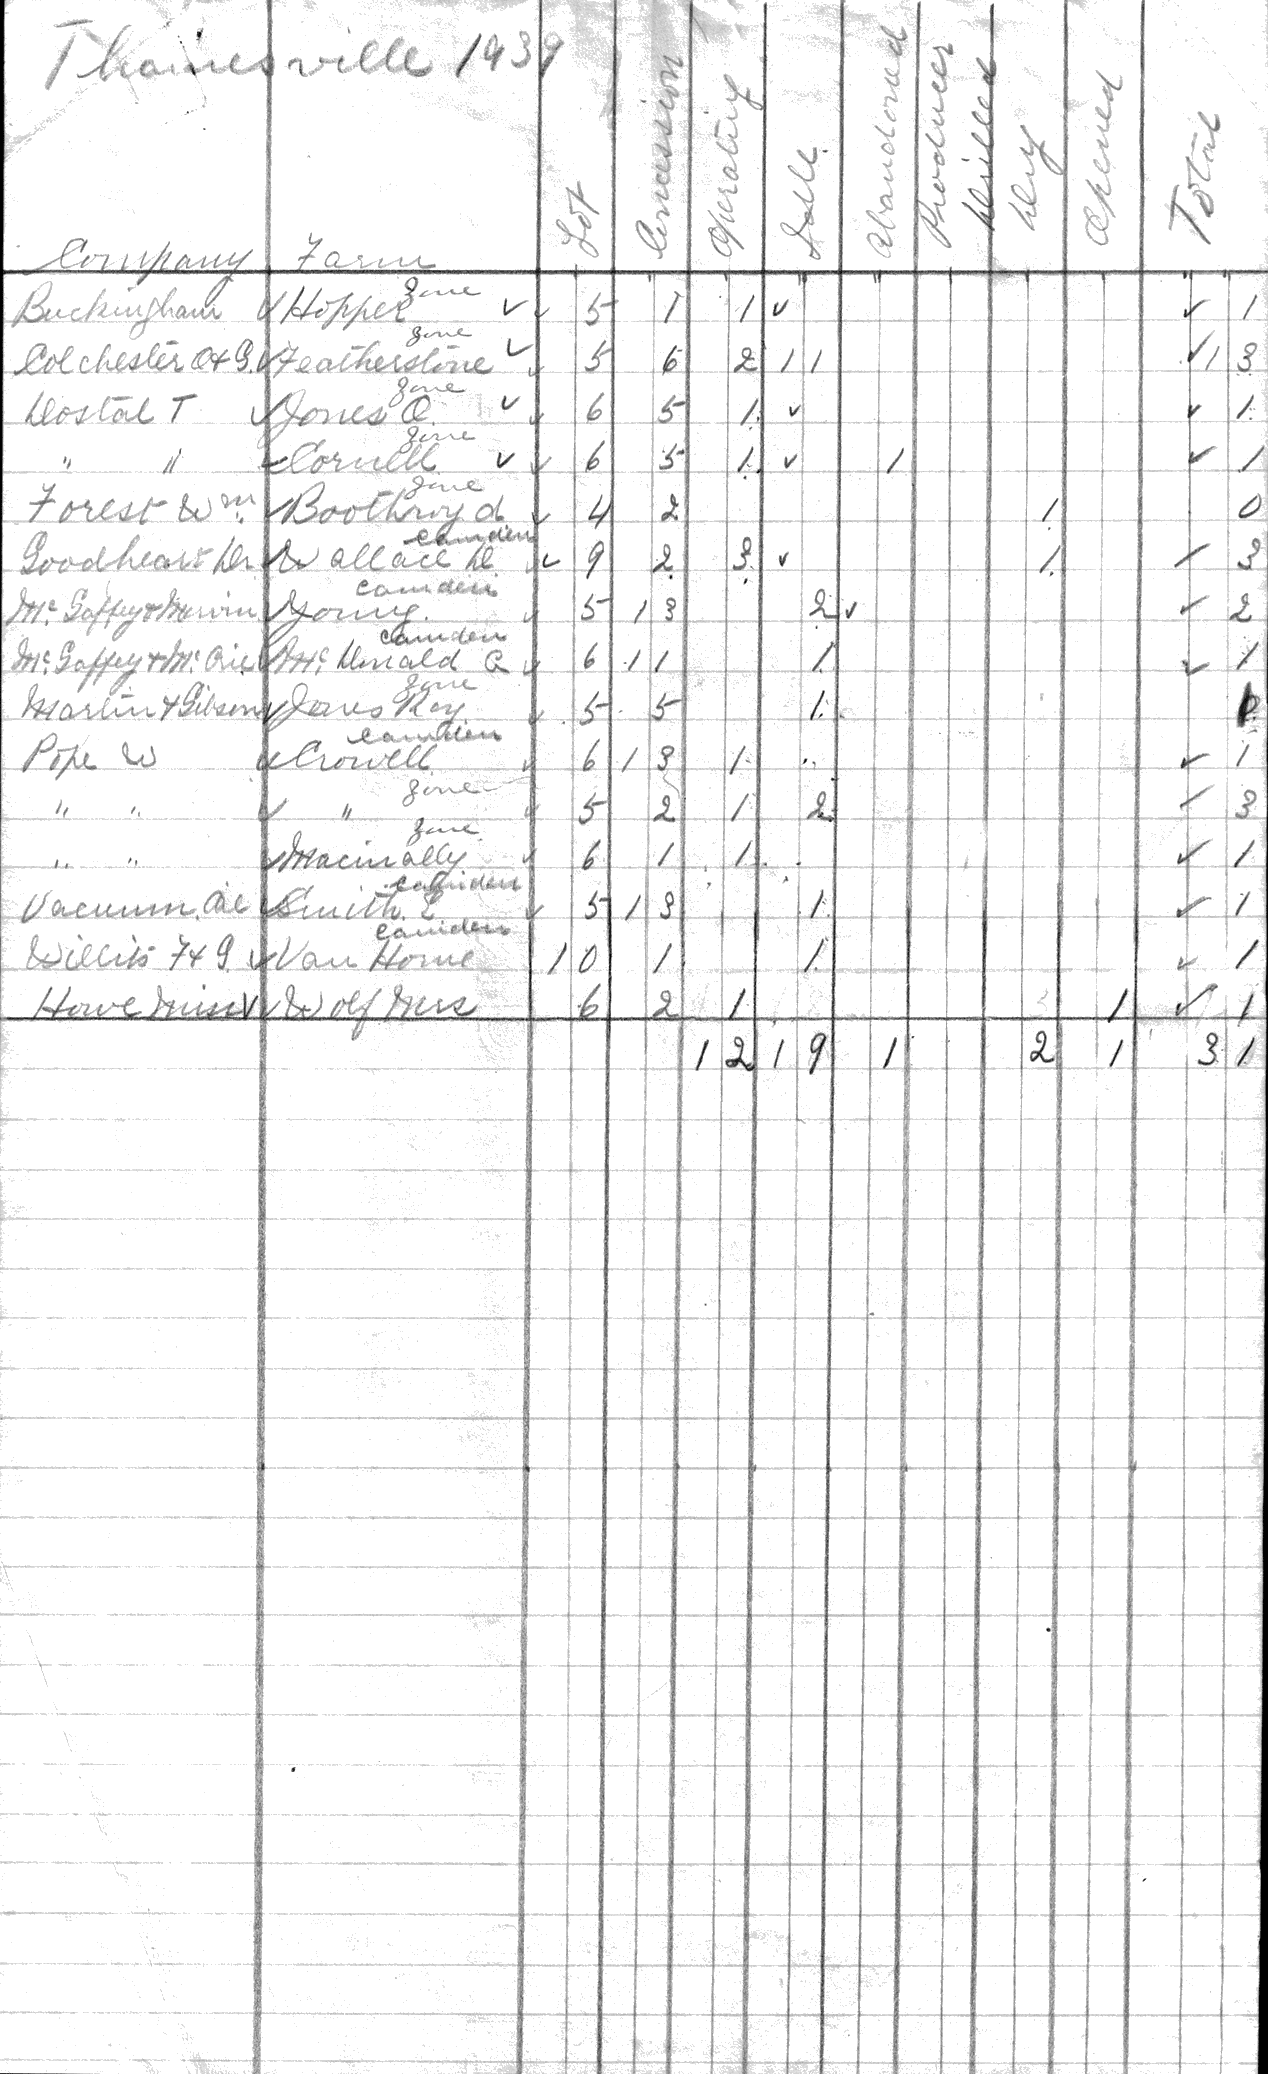 Thamesville 1939
Company Farm Lot Concession Operating Idle Abandoned Producer Drilled Dry Opened Total
Zone
Buckingham ✓ Hopper ✓ ✓ 5 1 1 ✓ ✓ 1
Zone
Colchester O & G. ✓ Featherstone ✓ ✓ 5 6 2 1 1 ✓ 1 3
Zone
Dostal T ✓ Jones O. ✓ ✓ 6 5 1 ✓ ✓ 1
Zone
" " Cornell ✓ ✓ 6 5 1 ✓ 1 ✓ 1
Zone
Forest Wm. ✓ Boothroyd ✓ 4 2 1 0
Camden
Goodheart Dr. Wallace D ✓ 9 2 3 ✓ 1 ✓ 3
Camden
Mc Gaffey & Marvin Young ✓ 5 13 2 ✓ ✓ 2
Camden
Mc Gaffey & Mc ✓ Mc Donald A ✓ 6 11 1 ✓ 1
Zone
Martin & Gibson ✓ Jones Roy ✓ 5 5 1
Camden
Pope W ✓ Crowell ✓ 6 13 1 ✓ 1
Zone
" " ✓ " 5 2 1 2 ✓ 3
Zone
" " ✓ Macinally ✓ 6 1 1 ✓ 1
Camden
Vacuum Oil ✓ Smith E ✓ 5 13 1 ✓ 1
Camden
Willits F & G. ✓ Van Horne 10 1 1 ✓ 1
Howe ✓ Wolf Mrs 6 2 1 1 ✓ 1
12 19 1 2 1 31